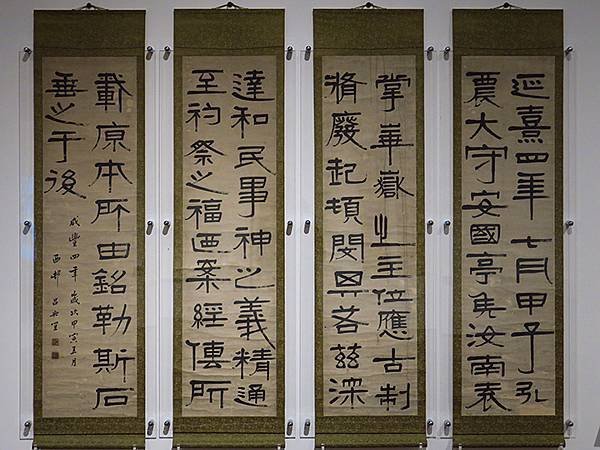 延熹四年七月甲子弘
農大守安國亭矦汝南袁
掌華嶽㞢主位應古制
脩廢起頓閔其若茲深
達和民事神之義精通
至礿祭之福迺案經傳所
載原本所由銘勒斯石
垂之于後
咸豐四年歲次甲寅五月
西邨呂世宜